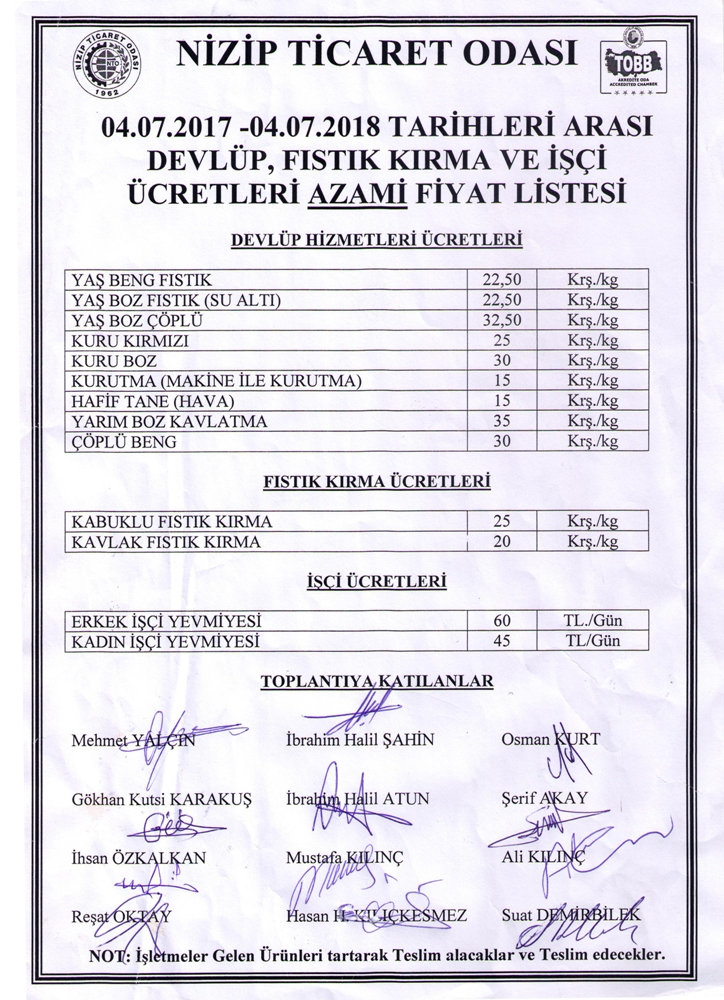 NİZİP TİCARET ODASI
NİZİP TİCARET ODASI
NTO
1962
TOBB
AKREDİTE ODA
ACCREDITED CHAMBER
04.07.2017 -04.07.2018 TARİHLERİ ARASI
DEVLÜP, FISTIK KIRMA VE İŞÇİ
ÜCRETLERİ AZAMİ FİYAT LİSTESİ
DEVLÜP HİZMETLERİ ÜCRETLERİ
YAŞ BENG FISTIK 22,50 Krş./kg
YAŞ BOZ FISTIK (SU ALTI) 22,50 Krş./kg
YAŞ BOZ ÇÖPLÜ 32,50 Krş./kg
KURU KIRMIZI 25 Krş./kg
KURU BOZ 30 Krş./kg
KURUTMA (MAKİNE İLE KURUTMA) 15 Krş./kg
HAFİF TANE (HAVA) 15 Krş./kg
YARIM BOZ KAVLATMA 35 Krş./kg
ÇÖPLÜ BENG 30 Krş./kg
FISTIK KIRMA ÜCRETLERİ
KABUKLU FISTIK KIRMA 25 Krş./kg
KAVLAK FISTIK KIRMA 20 Krş./kg
İŞÇİ ÜCRETLERİ
ERKEK İŞÇİ YEVMİYESİ 60 TL./Gün
KADIN İŞÇİ YEVMİYESİ 45 TL/Gün
TOPLANTIYA KATILANLAR
Mehmet YALÇIN İbrahim Halil ŞAHİN Osman KURT
Gökhan Kutsi KARAKUŞ İbrahim Halil ATUN Şerif AKAY
İhsan ÖZKALKAN Mustafa KILINÇ Ali KILINÇ
Reşat OKTAY Hasan H. KILIÇKESMEZ Suat DEMİRBİLEK
NOT: İşletmeler Gelen Ürünleri tartarak Teslim alacaklar ve Teslim edecekler.